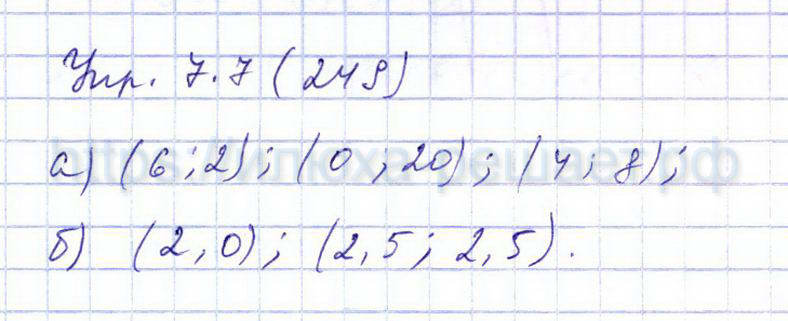 Упр. 7.7 (249)
а) (6 ; 2) ; (0 ; 20) ; (4 ; 8) ;
б) (2, 0) ; (2,5 ; 2,5) .